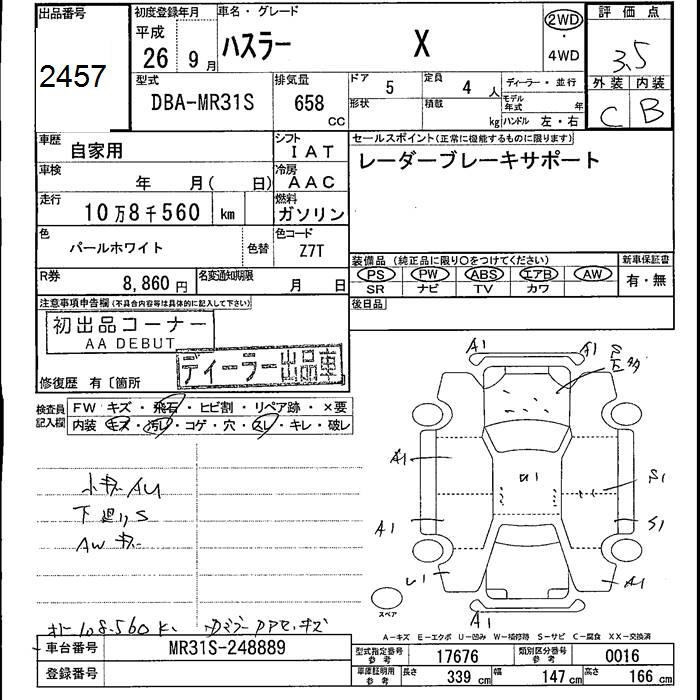 出品番号 初度登録年月 車名・グレード 評価点
2457
平成 26 9月 ハスラー X 2WD・4WD 3.5
外装 内装
C B
型式 DBA-MR31S 排気量 658 CC ドア 5 定員 4人 ディーラー・並行
形状 積載 kg モデル年式 年
ハンドル 左・右
車歴 自家用 シフト IAT セールスポイント(正常に機能するものに限ります)
レーダーブレーキサポート
車検 年 月( 日) 冷房 AAC
走行 10万8千560 km 燃料 ガソリン
色 パールホワイト 色替 色コード Z7T
装備品(純正品に限り○をつけてください) 新車保証書
PS PW ABS エアB AW 有・無
SR ナビ TV カワ
R券 8,860円 名変通知期限 月 日
後日品
注意事項申告欄(不具合内容等は具体的に記入して下さい)
初出品コーナー
AA DEBUT
ディーラー出品車
修復歴 有〔箇所
検査員記入欄 FW キズ・飛石・ヒビ割・リペア跡・×要
内装 キズ・汚レ・コゲ・穴・スレ・キレ・破レ
A1 A1
A1 U1 S1
A1 S1
U1 A1
A1
小キズ AU
下廻り S
AW キズ
スペア
108.560
A-キズ E-エクボ U-凹み W-補修跡 S-サビ C-腐食 XX-交換済
車台番号 MR31S-248889
登録番号
型式指定番号 参考 17676 類別区分番号 参考 0016
車庫証明用 参考 長さ 339 cm 幅 147 cm 高さ 166 cm